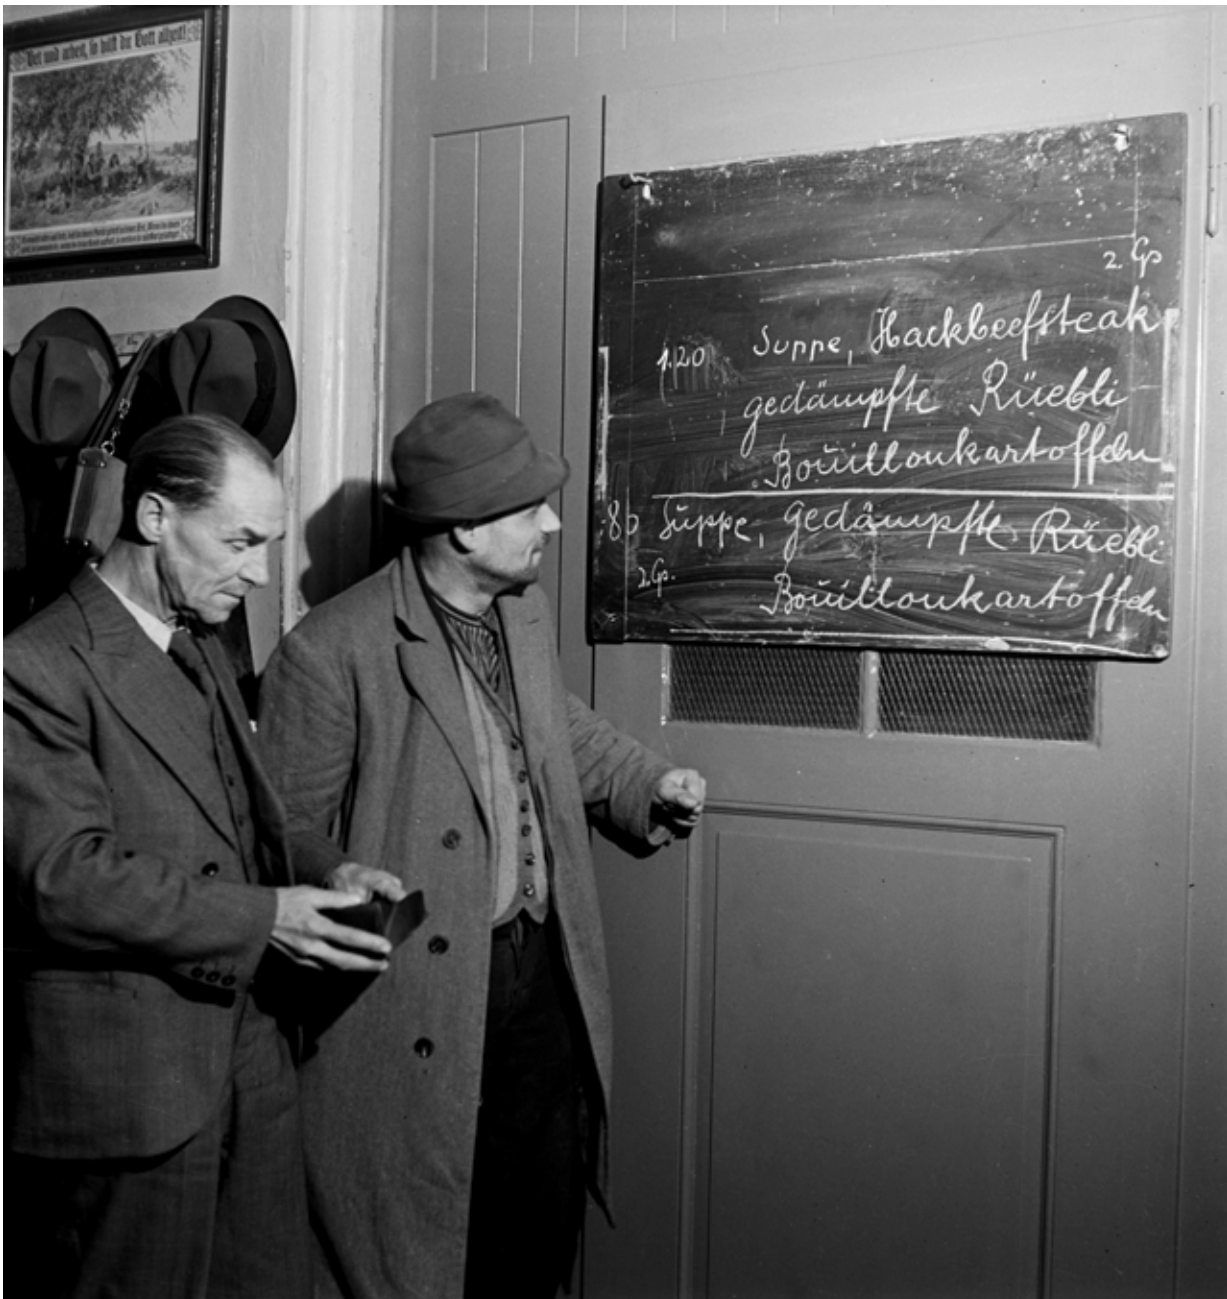 Bet und arbeit, so hilft dir Gott allzeit!
2. Gs
1.20 Suppe, Hackbeefsteak
gedämpfte Rüebli
Bouillonkartoffeln
-.80 Suppe, gedämpfte Rüebli
2. Gs. Bouillonkartoffeln